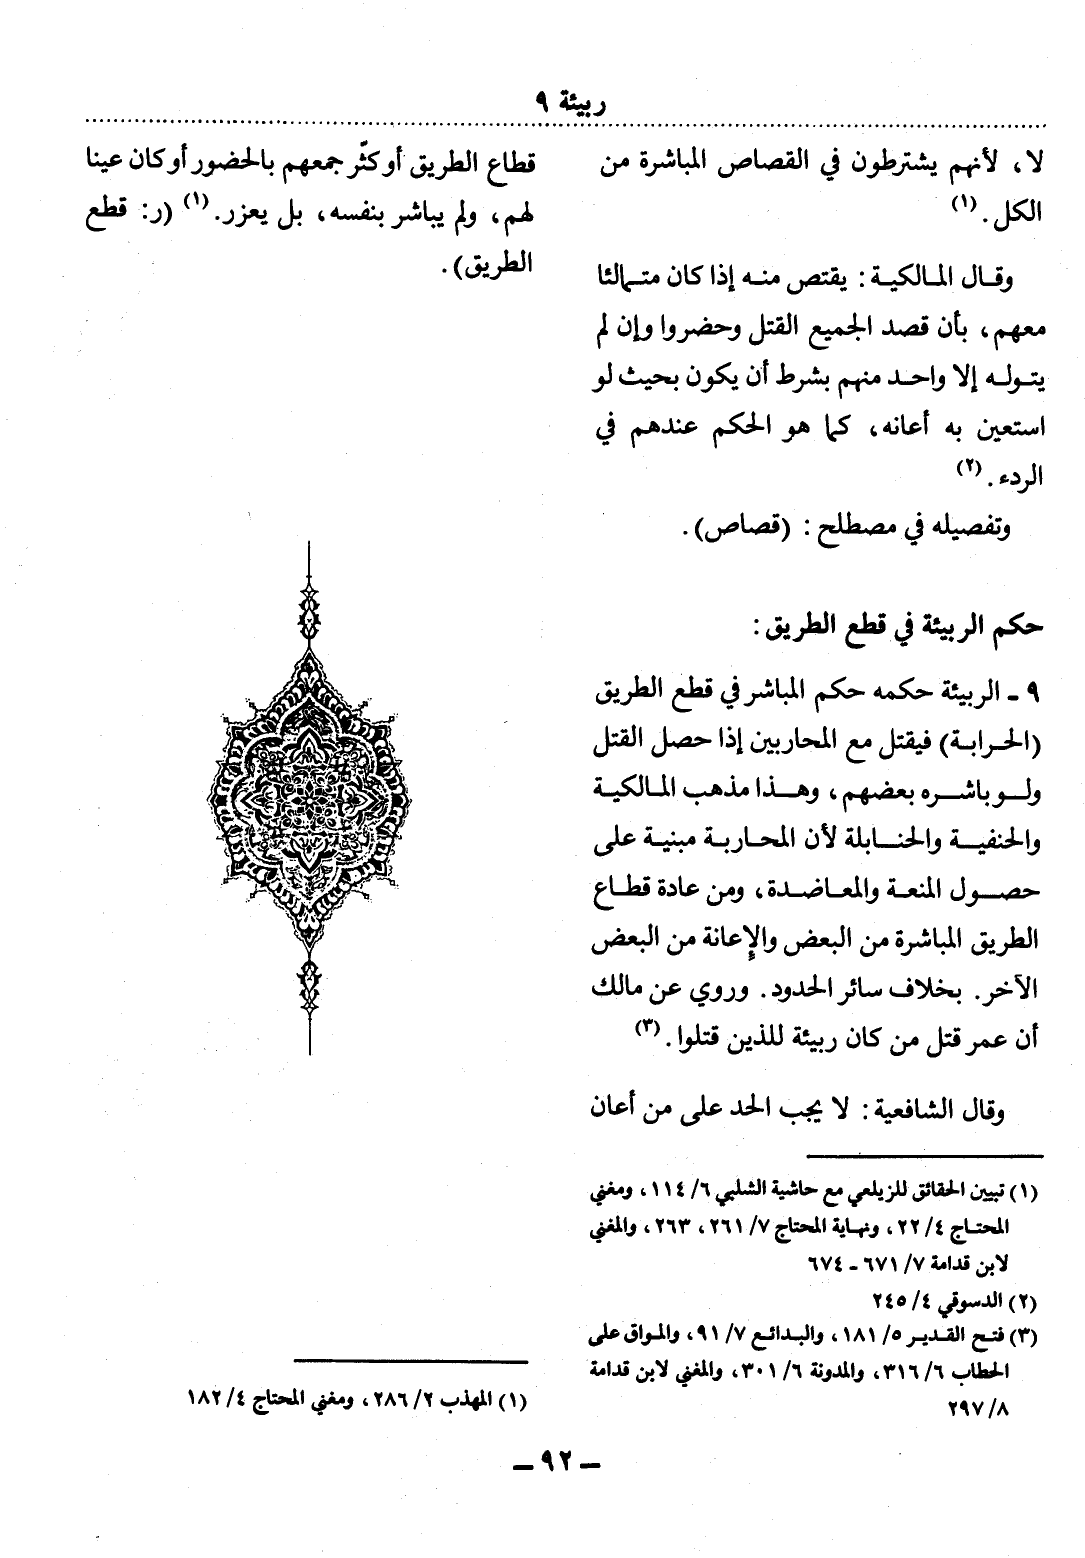 ربيئة ٩
لا، لأنهم يشترطون في القصاص المباشرة من
الكل. (١)
وقال المالكية: يقتص منه إذا كان متمالئا
معهم، بأن قصد الجميع القتل وحضروا وإن لم
يتوله إلا واحد منهم بشرط أن يكون بحيث لو
استعين به أعانه، كما هو الحكم عندهم في
الردء. (٢)
وتفصيله في مصطلح: (قصاص).
حكم الربيئة في قطع الطريق:
٩ ـ الربيئة حكمه حكم المباشر في قطع الطريق
(الحرابة) فيقتل مع المحاربين إذا حصل القتل
ولو باشره بعضهم، وهذا مذهب المالكية
والحنفية والحنابلة لأن المحاربة مبنية على
حصول المنعة والمعاضدة، ومن عادة قطاع
الطريق المباشرة من البعض والإعانة من البعض
الآخر. بخلاف سائر الحدود. وروي عن مالك
أن عمر قتل من كان ربيئة للذين قتلوا. (٣)
وقال الشافعية: لا يجب الحد على من أعان
(١) تبيين الحقائق للزيلعي مع حاشية الشلبي ٦/ ١١٤، ومغني
المحتاج ٤/ ٢٢، ونهاية المحتاج ٧/ ٢٦١، ٢٦٣، والمغني
لابن قدامة ٧/ ٦٧١ ـ ٦٧٤
(٢) الدسوقي ٤/ ٢٤٥
(٣) فتح القدير ٥/ ١٨١، والبدائع ٧/ ٩١، والمواق على
الحطاب ٦/ ٣١٦، والمدونة ٦/ ٣٠١، والمغني لابن قدامة
٨/ ٢٩٧
قطاع الطريق أو كثّر جمعهم بالحضور أو كان عينا
لهم، ولم يباشر بنفسه، بل يعزر. (١) (ر: قطع
الطريق).
(١) المهذب ٢/ ٢٨٦، ومغني المحتاج ٤/ ١٨٢
ـ ٩٢ ـ